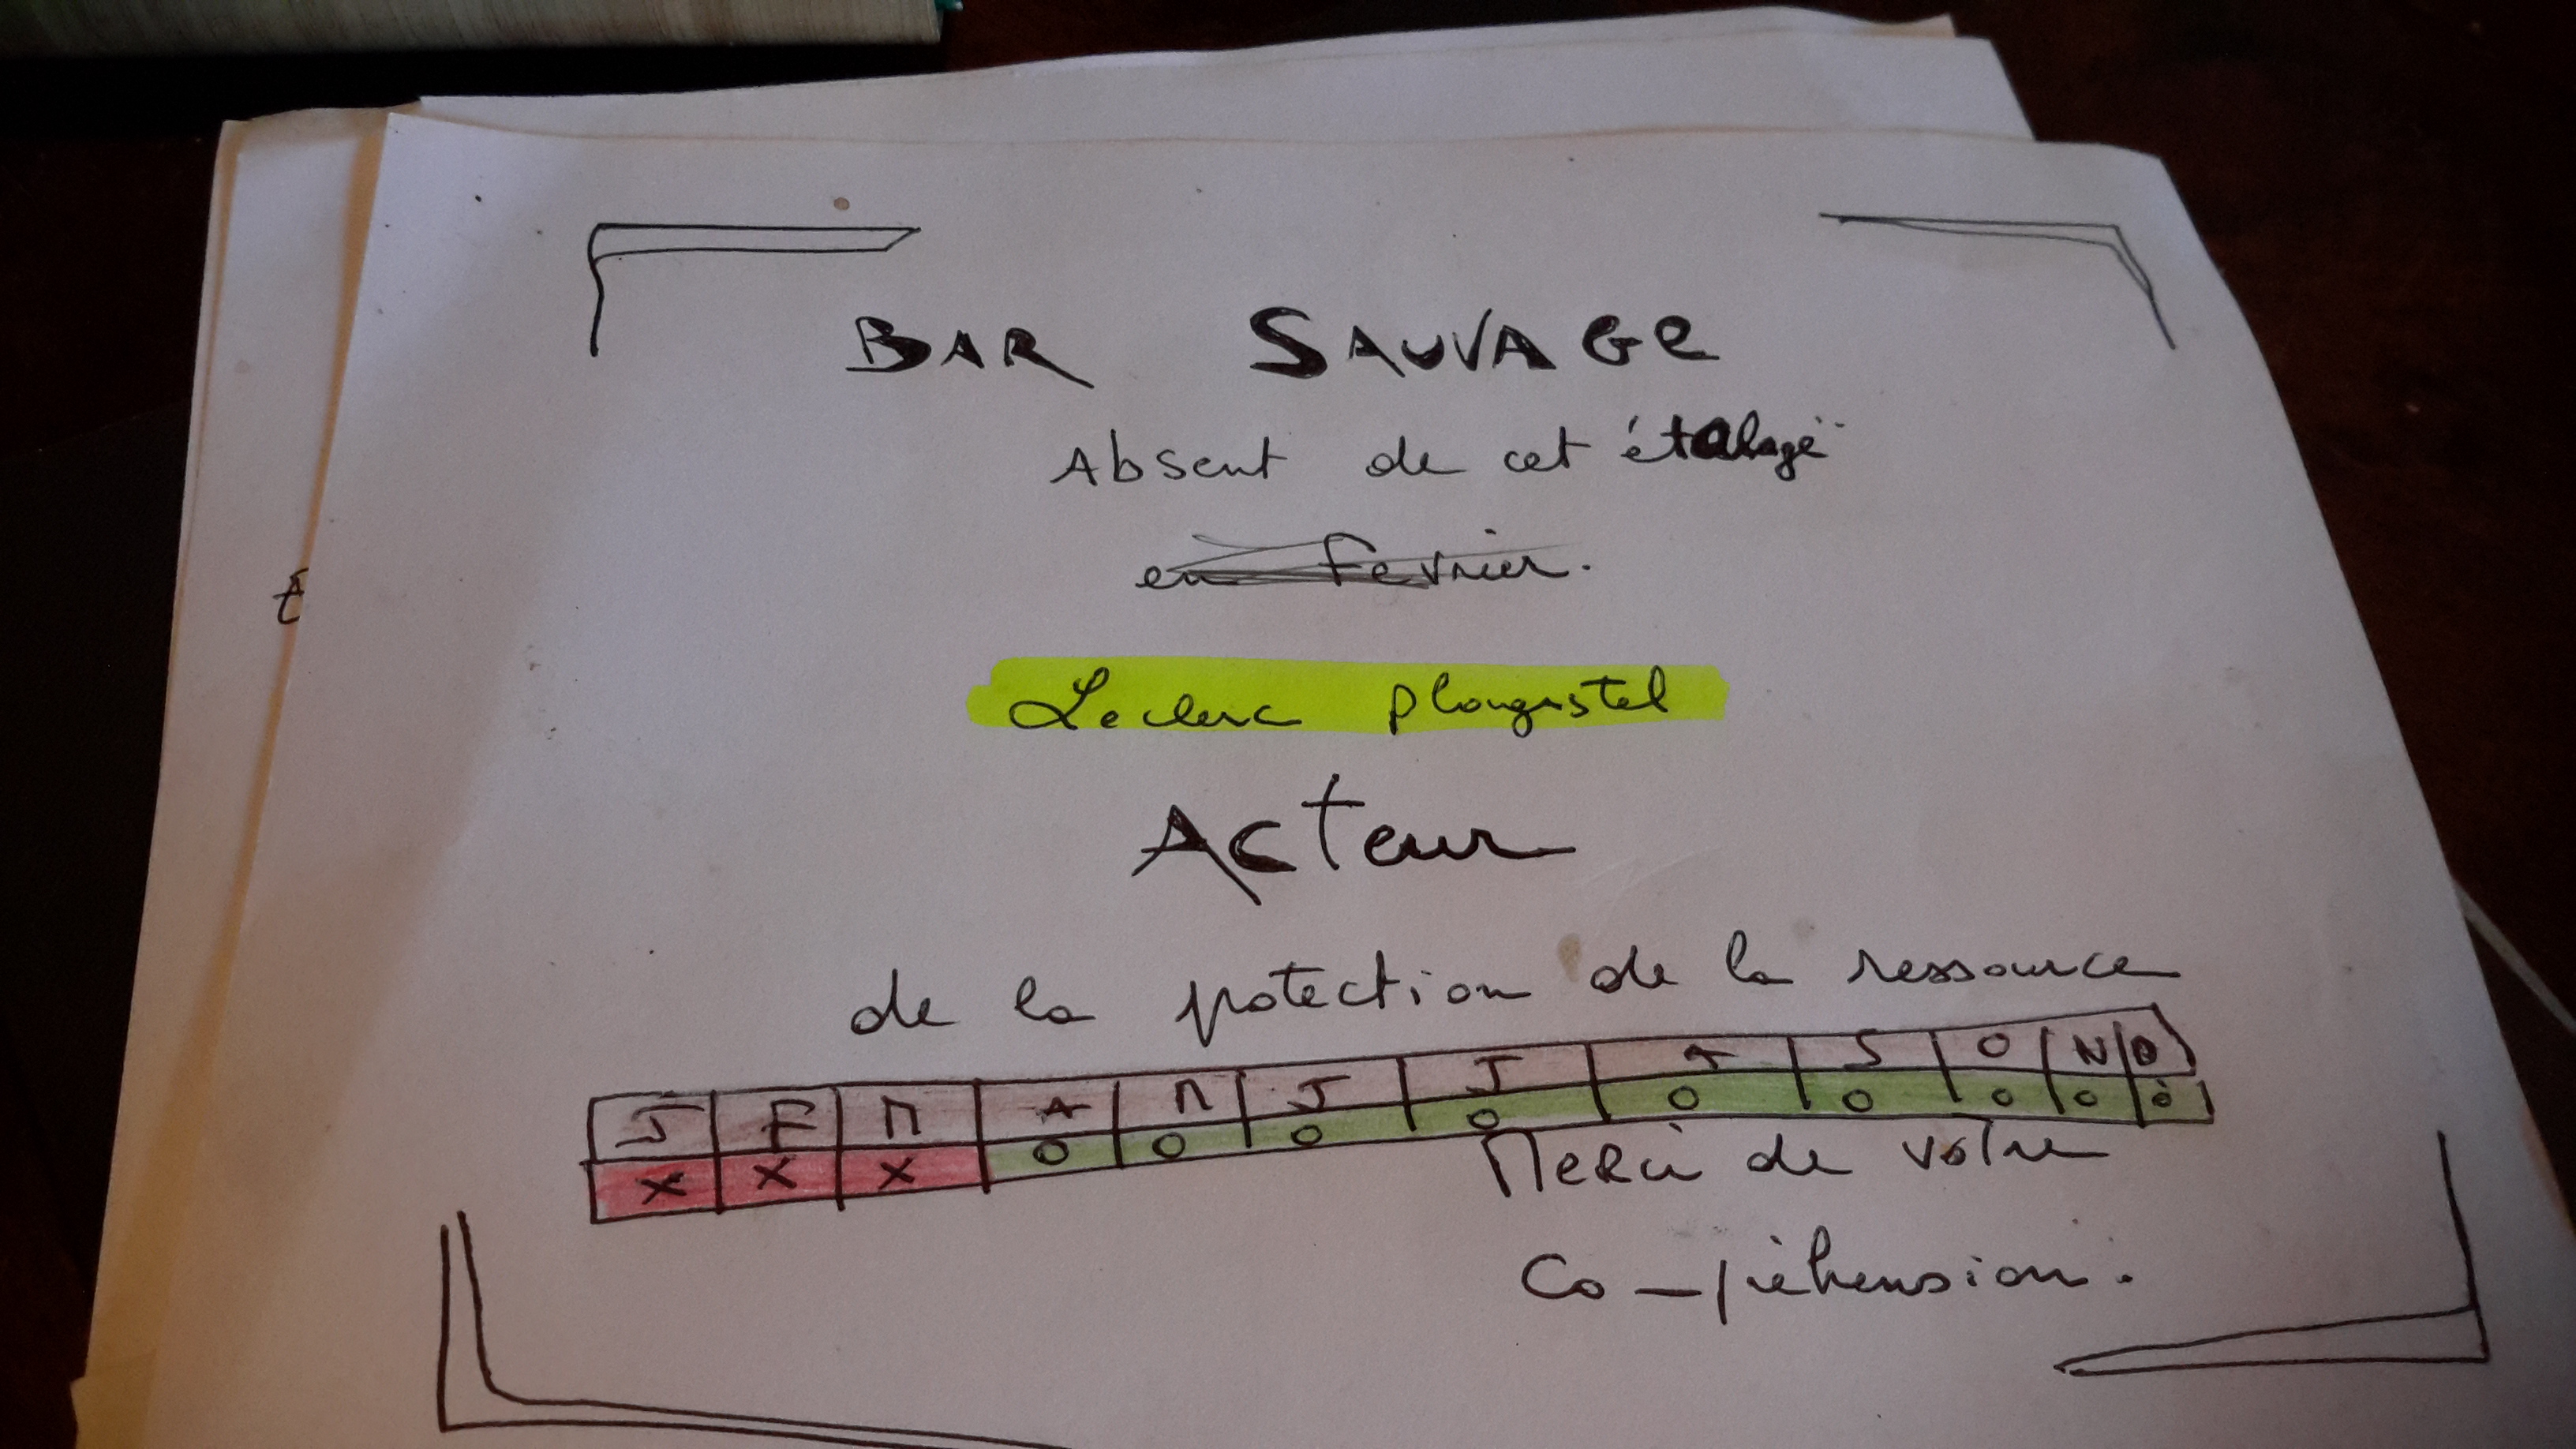 BAR SAUVAGE
Absent de cet étalage
en Fevrier.
Leclerc plougastel
Acteur
de la protection de la ressource
J F M A M J J A S O N D
X X X O O O O O O O O O
Merci de votre
Co-préhension.